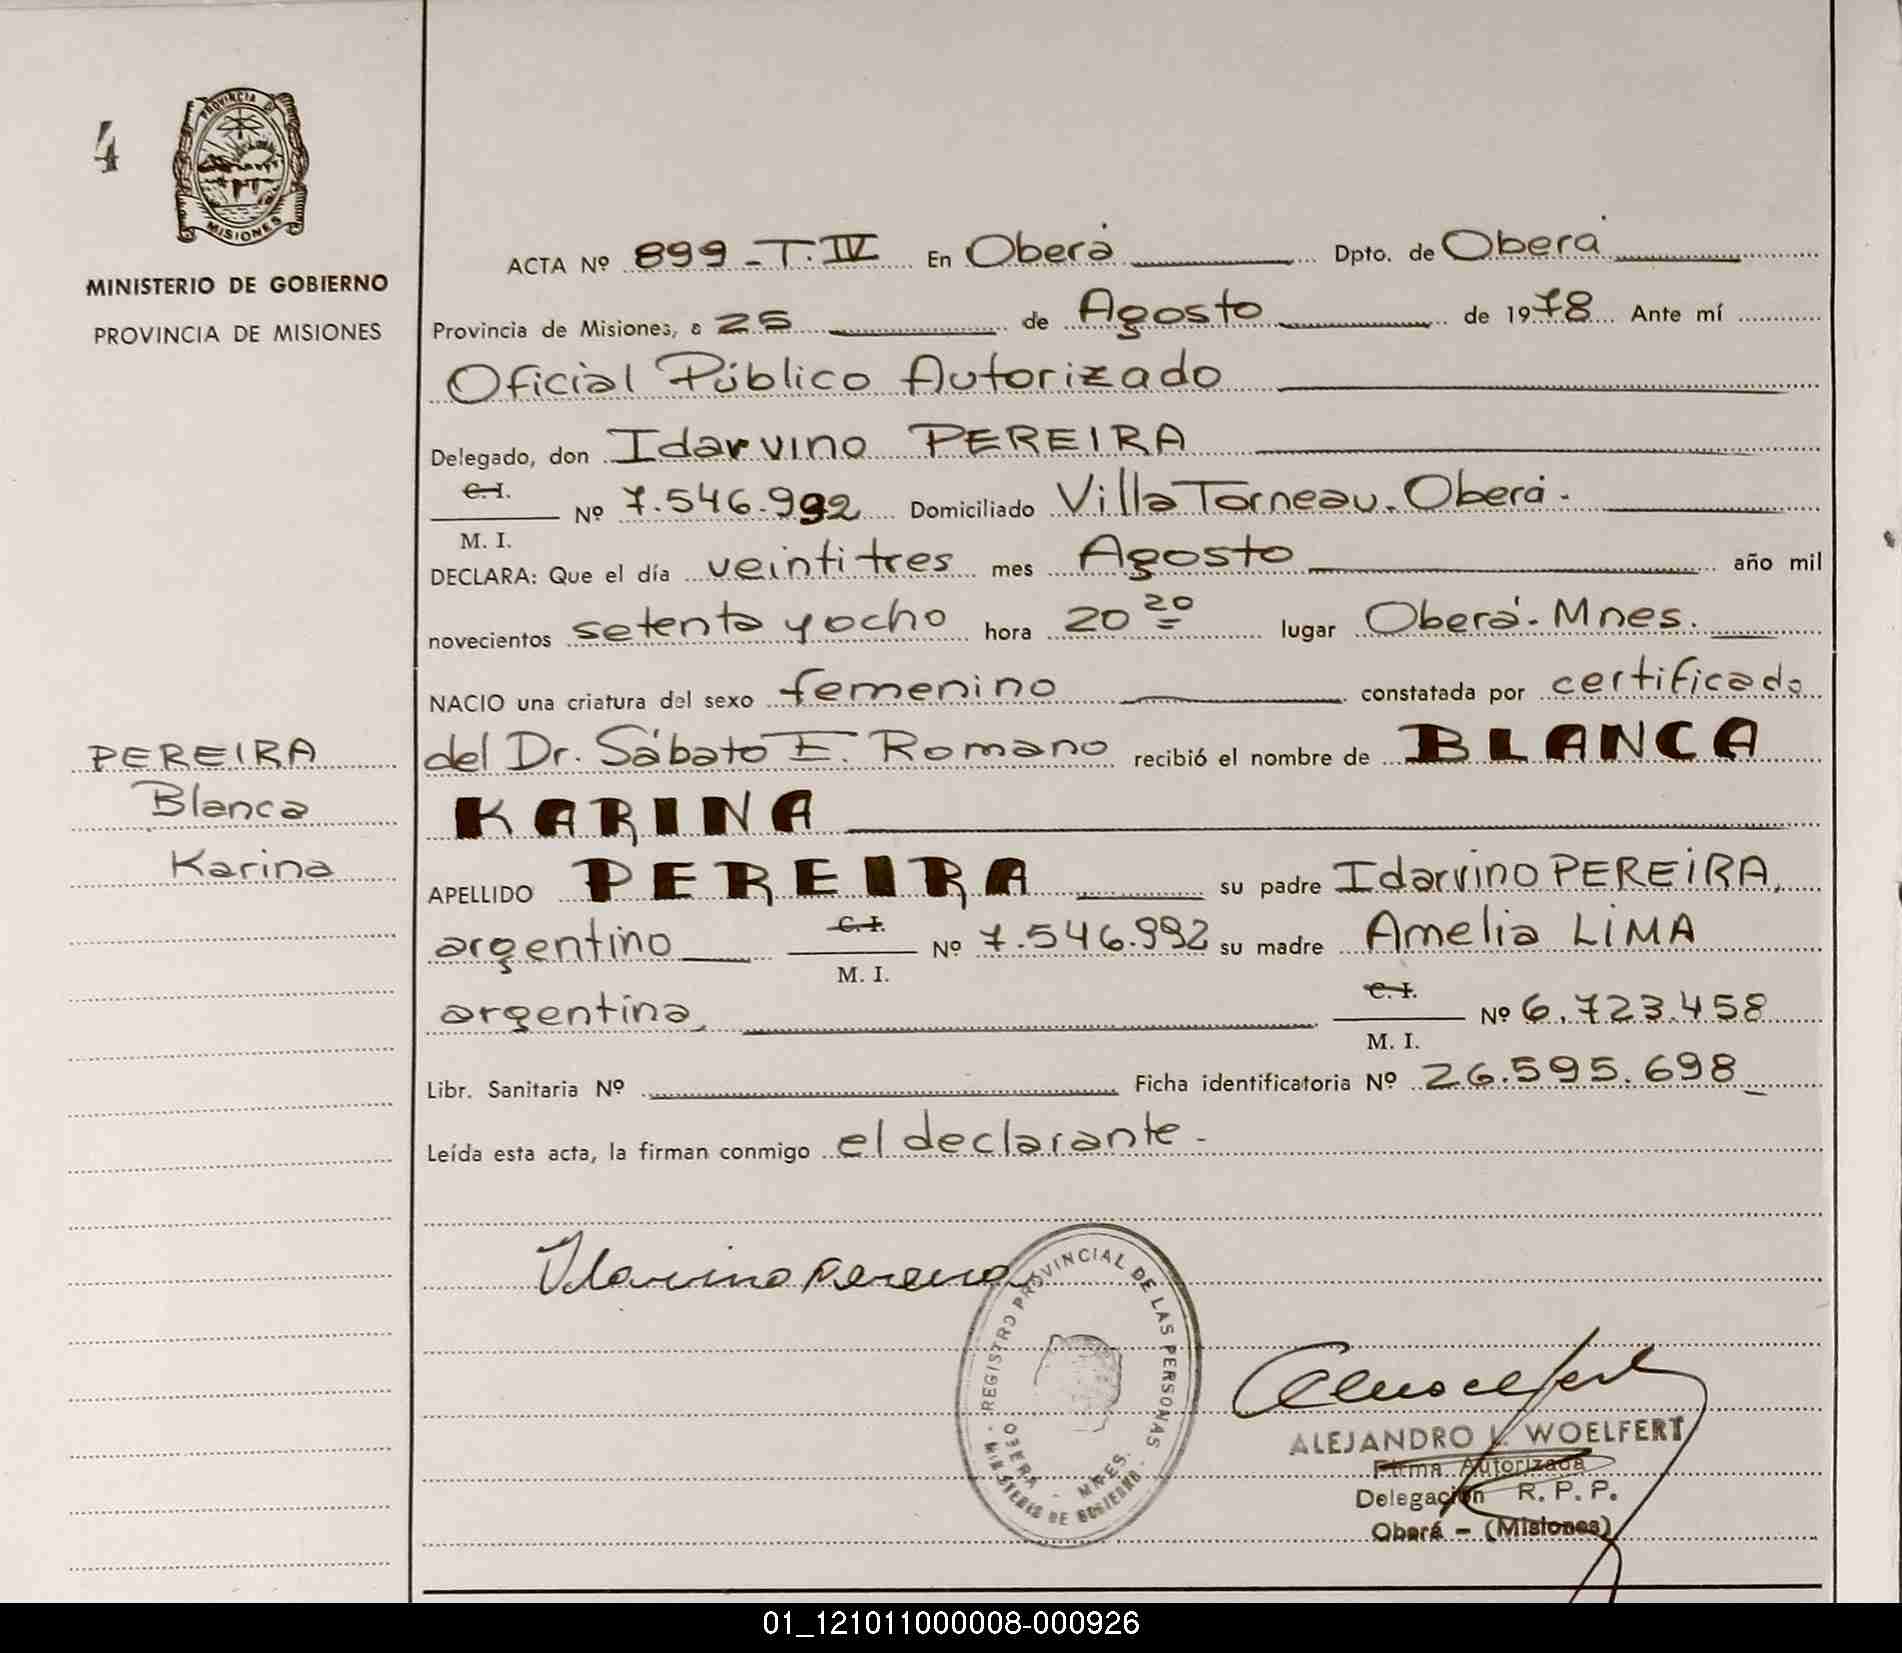 4
PROVINCIA DE
MISIONES
MINISTERIO DE GOBIERNO
PROVINCIA DE MISIONES
ACTA Nº 899 - T. IV En Oberá Dpto. de Oberá
Provincia de Misiones, a 25 de Agosto de 1978 Ante mí
Oficial Público Autorizado
Delegado, don Idarvino PEREIRA
C.I.
M. I.
Nº 7.546.992 Domiciliado Villa Torneau. Oberá.
DECLARA: Que el día veintitres mes Agosto año mil
novecientos setenta y ocho hora 20 20 lugar Oberá. Mnes.
NACIO una criatura del sexo femenino constatada por certificado
del Dr. Sábato E. Romano recibió el nombre de BLANCA
KARINA
APELLIDO PEREIRA su padre Idarvino PEREIRA,
argentino C.I. Nº 7.546.992 su madre Amelia LIMA
M. I.
argentina, C.I. Nº 6.723.458
M. I.
Libr. Sanitaria Nº Ficha identificatoria Nº 26.595.698
Leída esta acta, la firman conmigo el declarante.
PEREIRA
Blanca
Karina
Idarvino Pereira
REGISTRO PROVINCIAL DE LAS PERSONAS
OBERÁ - MNES.
MINISTERIO DE GOBIERNO
ALEJANDRO L. WOELFERT
Firma Autorizada
Delegación R. P. P.
Oberá - (Misiones)
01_121011000008-000926